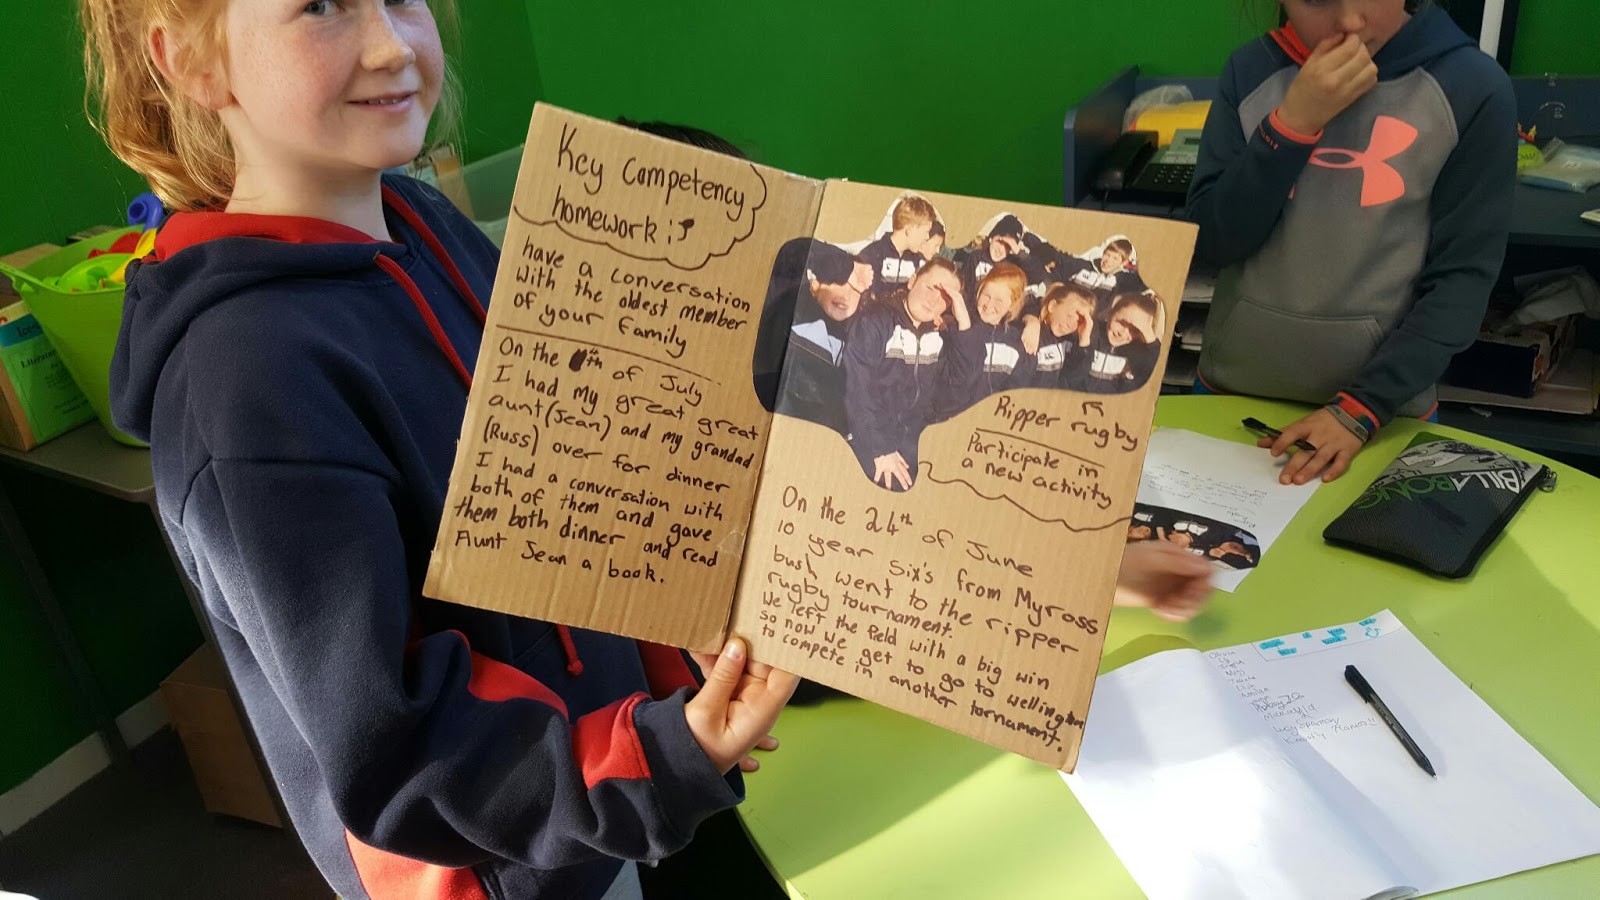 Key Competency
homework:
have a conversation
with the oldest member
of your family
On the th of July
I had my great great
aunt (Jean) and my grandad
(Russ) over for dinner
I had a conversation with
both of them and gave
them both dinner and read
Aunt Jean a book.
Ripper rugby
Participate in
a new activity
On the 24th of June
10 year six's from Myross
bush went to the ripper
rugby tournament.
We left the field with a big win
so now we get to go to wellington
to compete in another tornament.
BILLABONG
Olivia